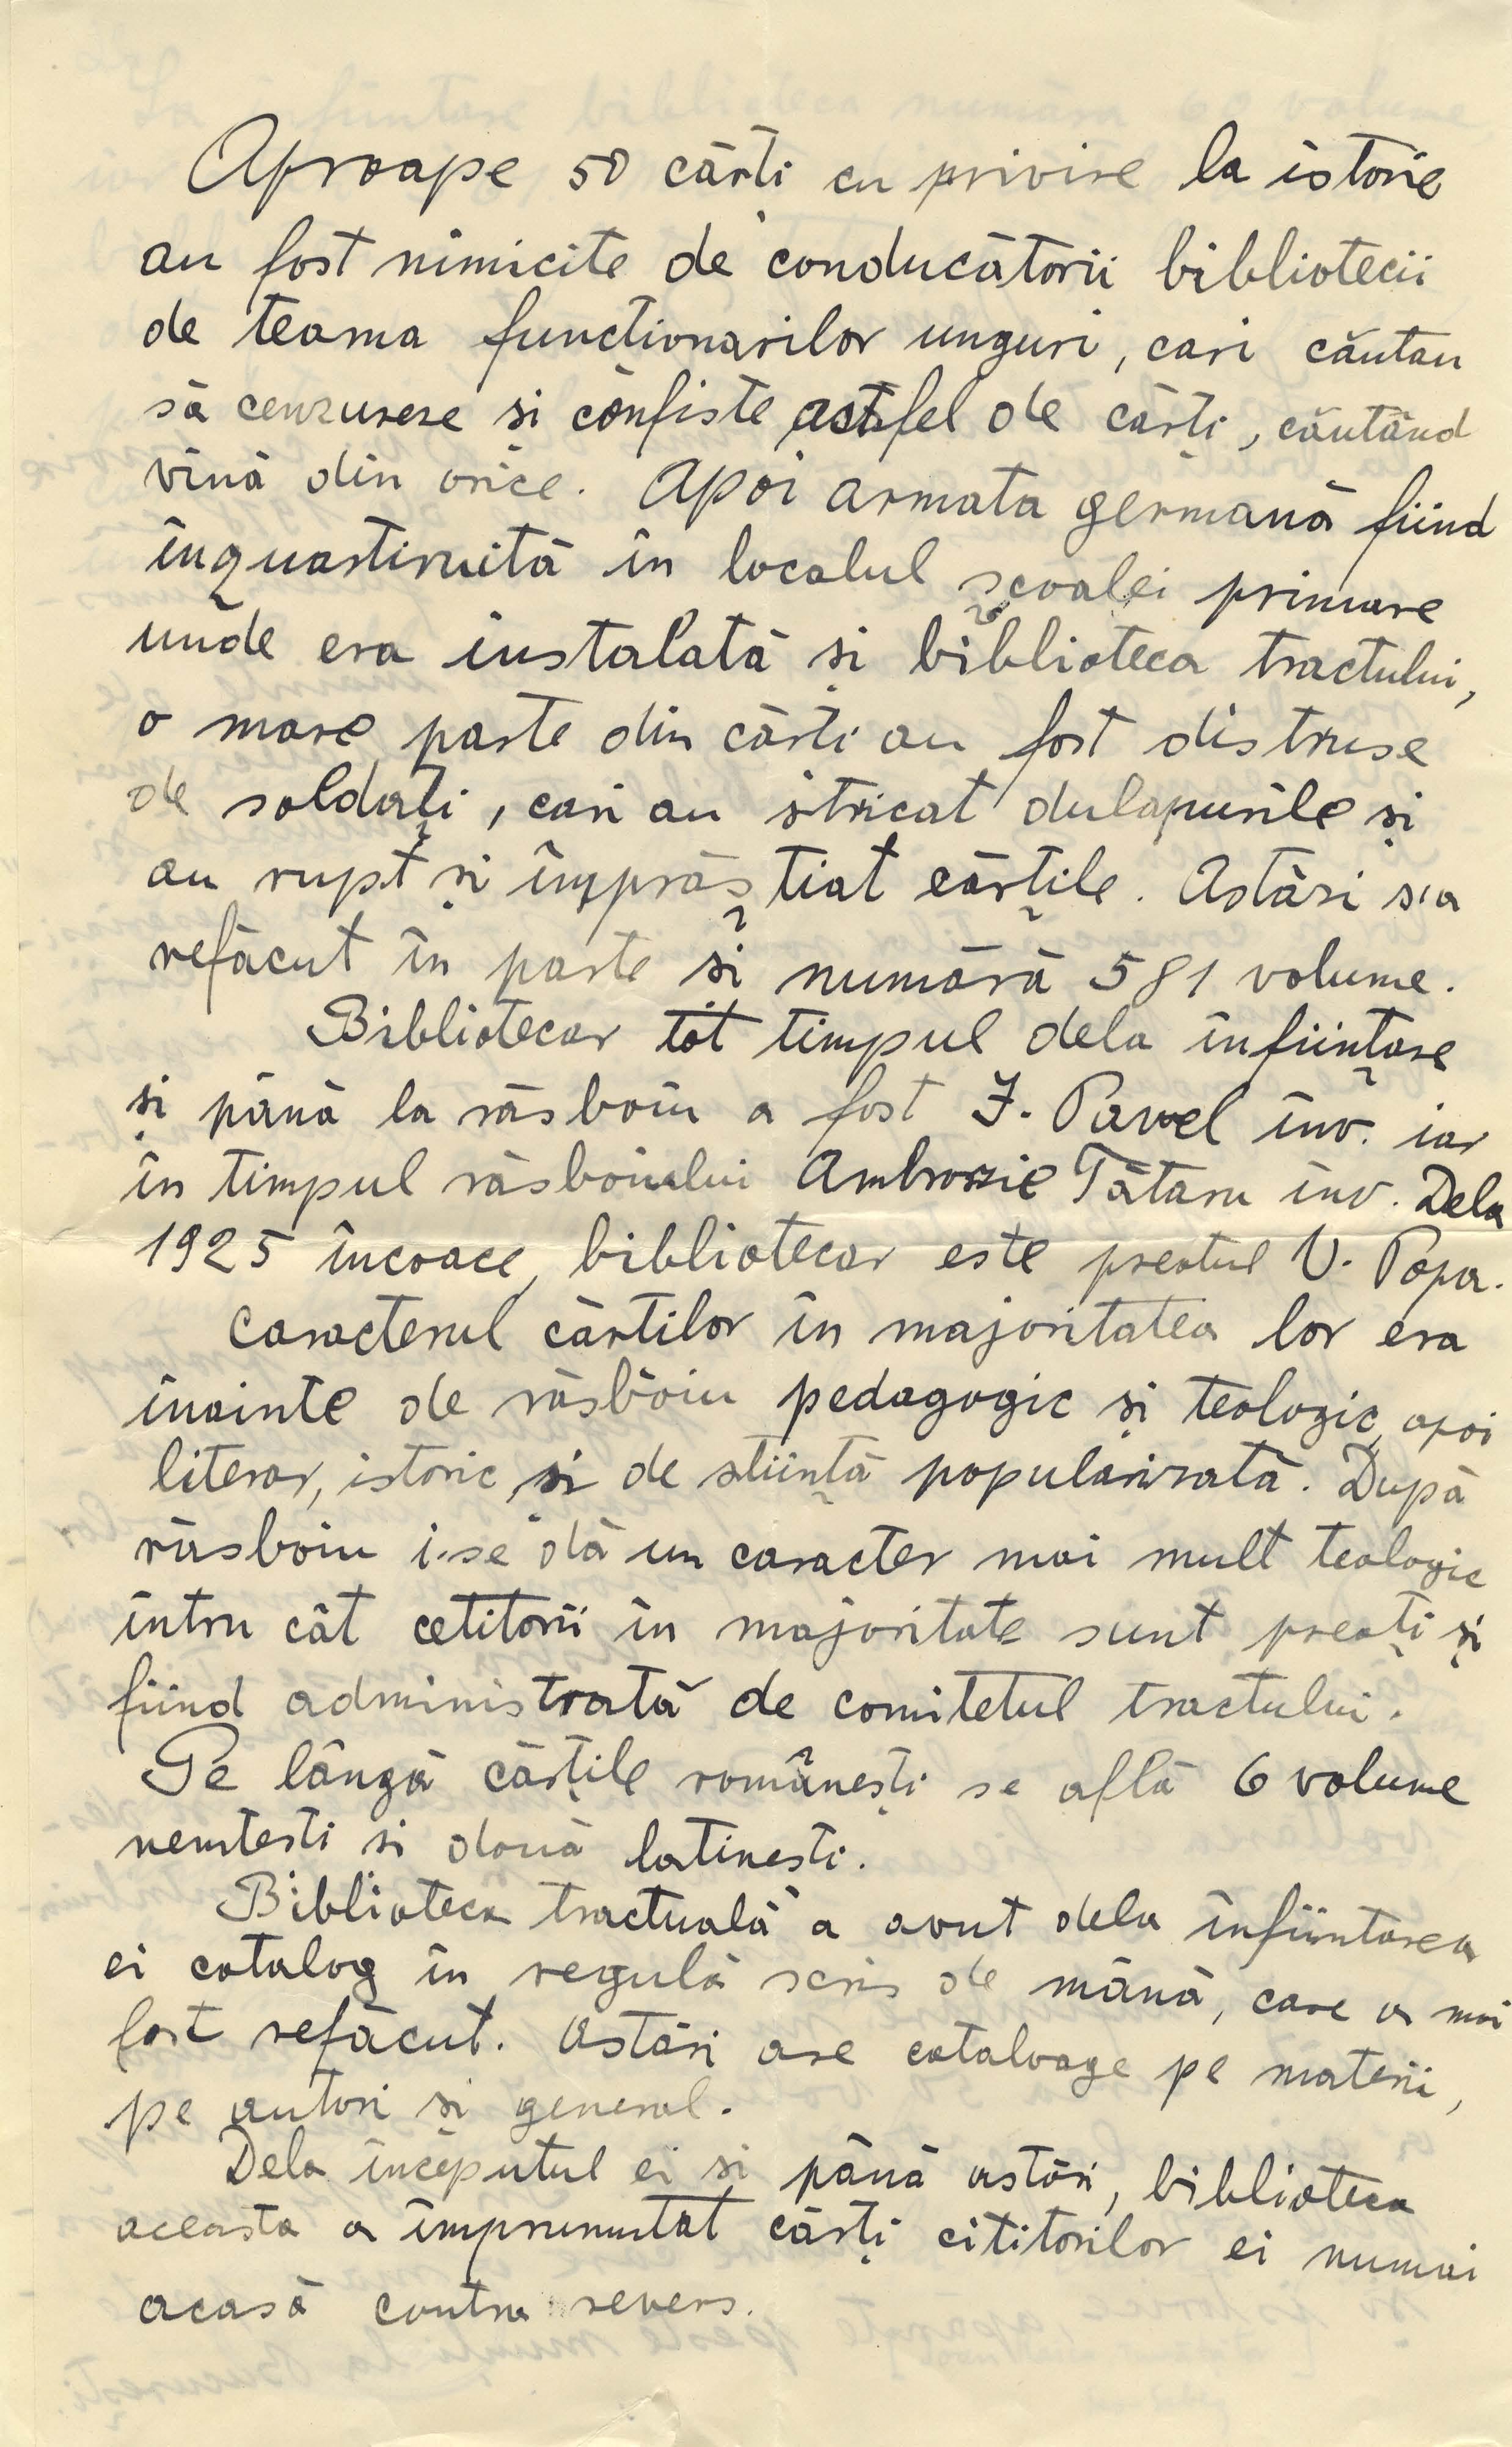 Aproape 50 cărți cu privire la istorie
au fost nimicite de conducătorii bibliotecii
de teama funcționarilor unguri, cari căutau
să cenzureze și confiste astfel de cărți, căutând
vină din orice. Apoi armata germană fiind
înquartiruită în localul școalei primare
unde era instalată și biblioteca tractului,
o mare parte din cărți au fost distruse
de soldați, cari au stricat dulapurile și
au rupt și împrăștiat cărțile. Astăzi s'a
refăcut în parte și numără 581 volume.
Bibliotecar tot timpul dela înființare
și până la răsboiu a fost I. Pavel înv. iar
în timpul răsboiului Ambrozie Tătaru înv. Dela
1925 încoace, bibliotecar este preotul V. Popa.
Caracterul cărților în majoritatea lor era
înainte de răsboiu pedagogic și teologic, apoi
literar, istoric și de știință popularizată. După
răsboiu i-se dă un caracter mai mult teologic
întru cât cetitorii în majoritate sunt preoți și
fiind administrată de comitetul tractului.
Pe lângă cărțile românești se află 6 volume
nemtesti si două latinești.
Biblioteca tractuală a avut dela înființarea
ei catalog în regulă scris de mână, care a mai
fost refăcut. Astăzi are cataloage pe materii,
pe autori și general.
Dela începutul ei si până astăzi, biblioteca
aceasta a împrumutat cărți cititorilor ei numai
acasă contra revers.